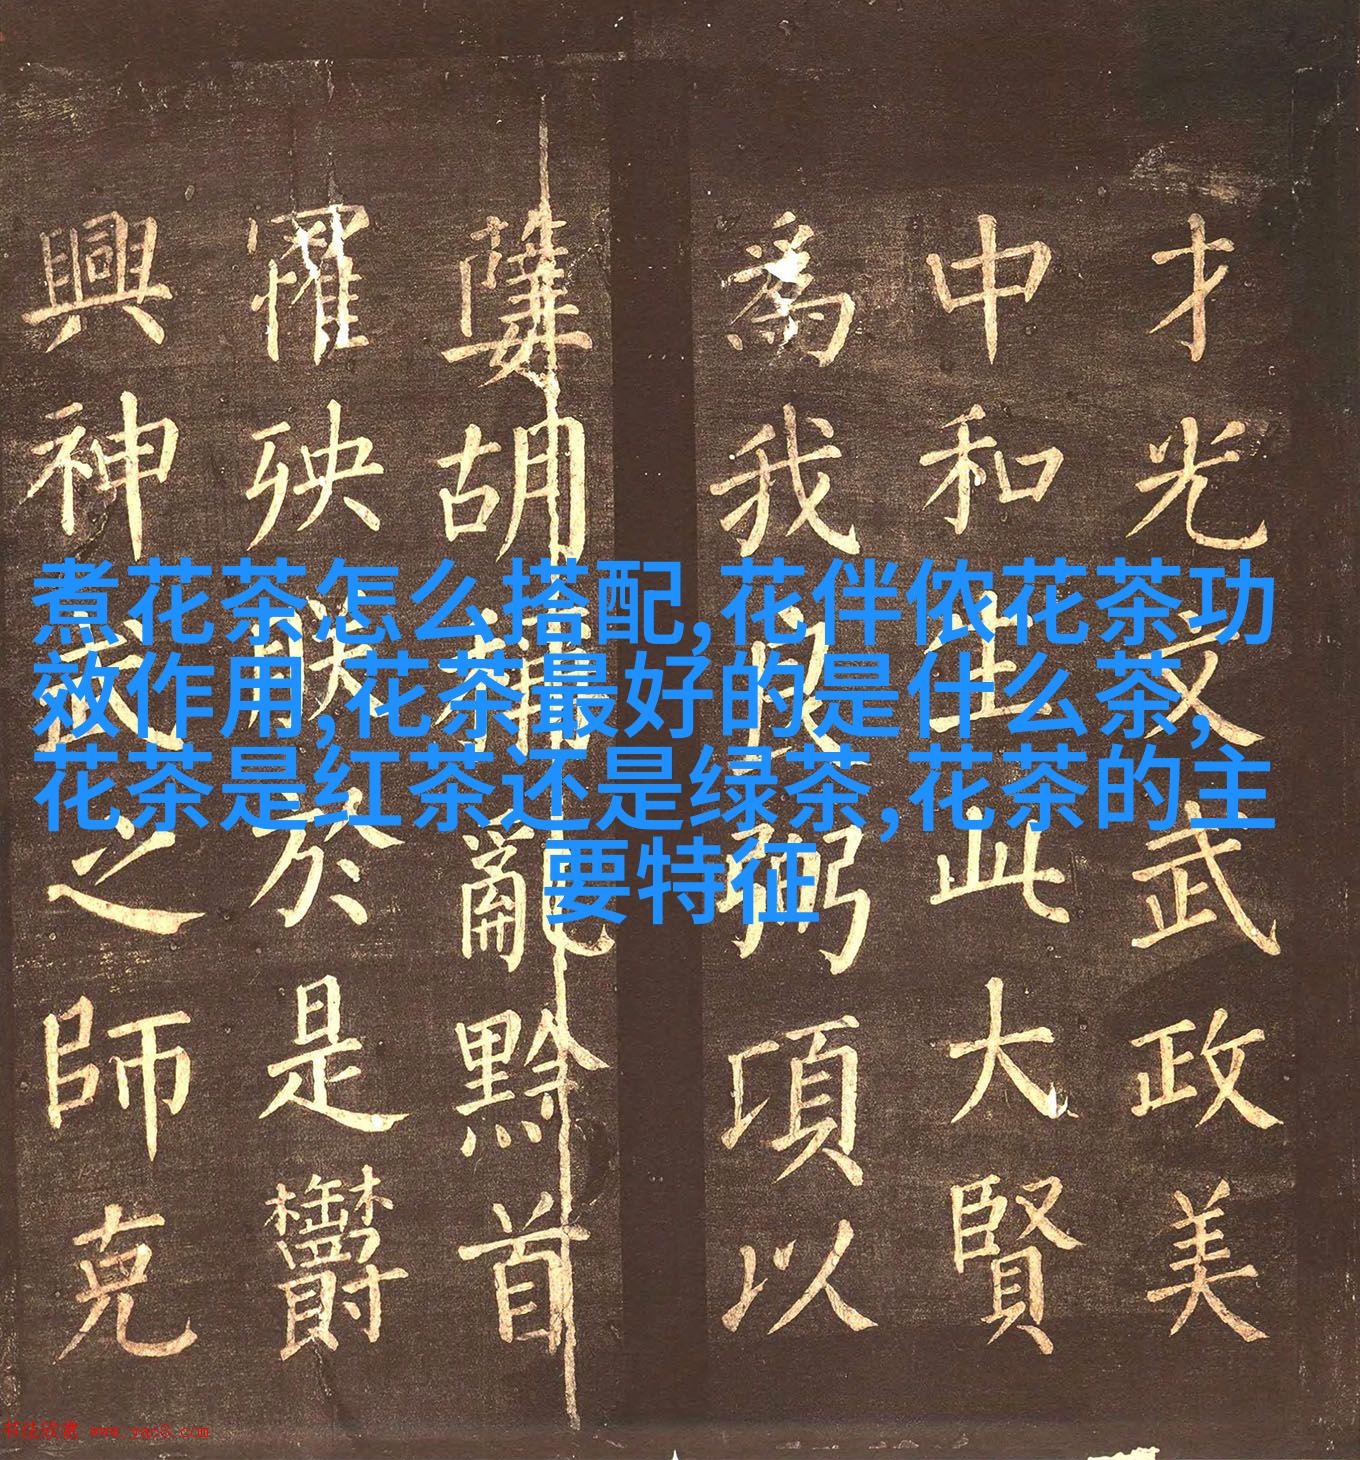 煮花茶怎么搭配,花伴侬花茶功
效作用,花茶最好的是什么茶,
花茶是红茶还是绿茶,花茶的主
要特征
才光文武政美
中和生此大賢
爲我良弼項以
胡稱亂黔首
罹殃朕於是欝
興神武之師克
书法欣赏 www.yac8.com